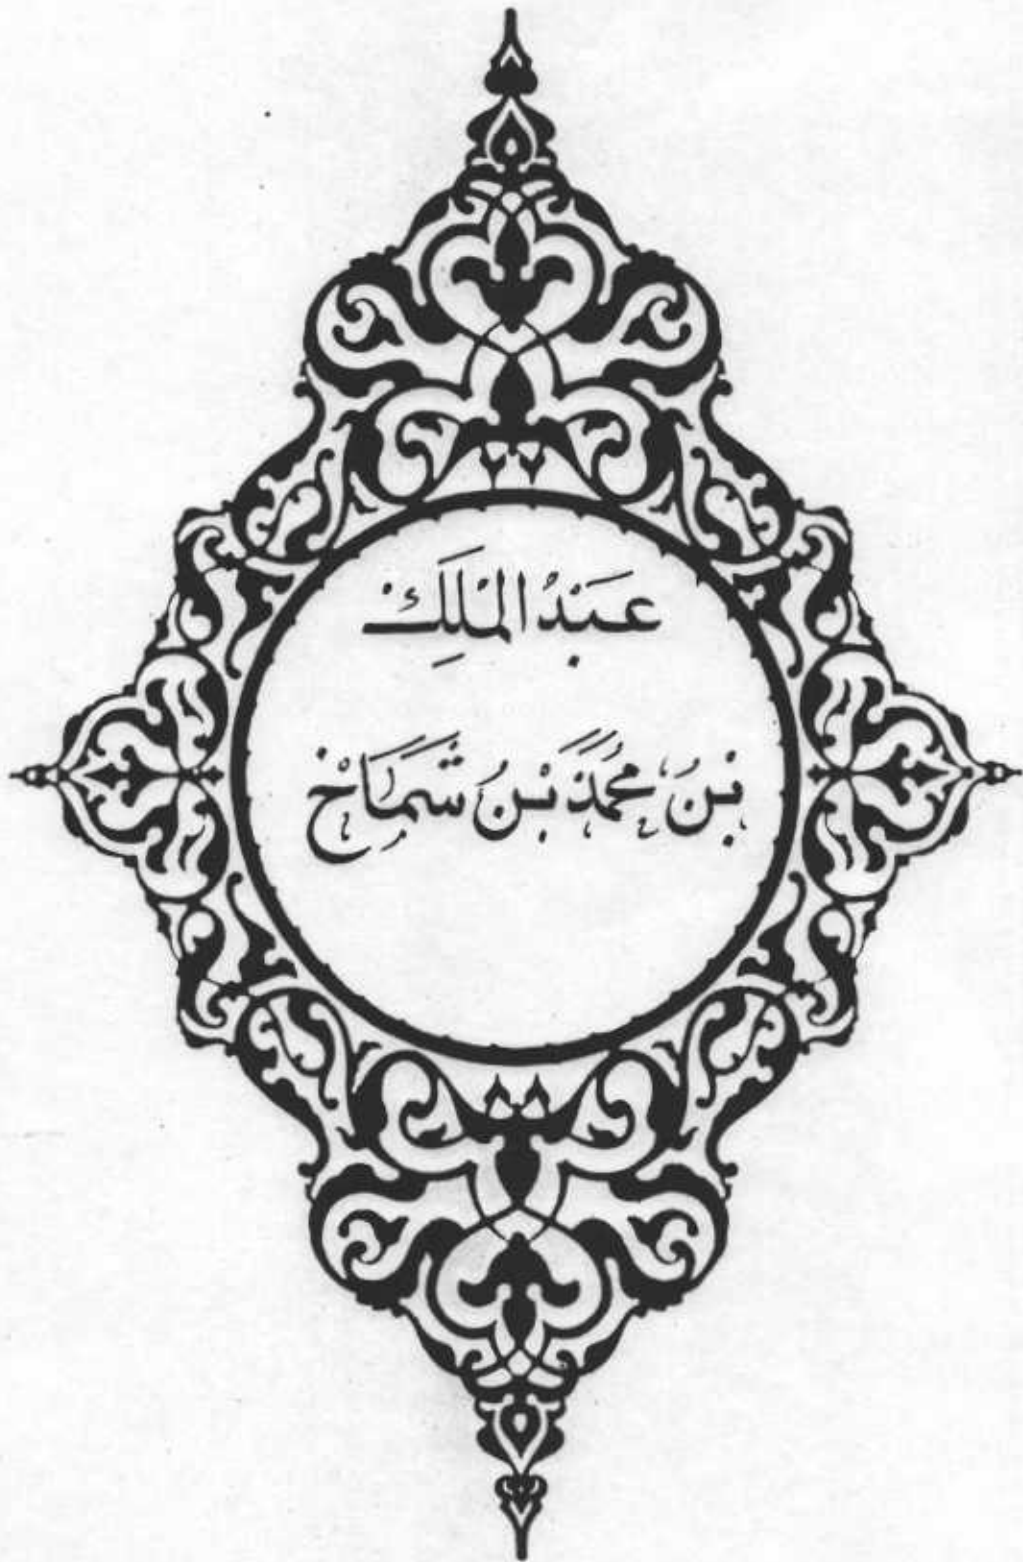 عَبْدُ الْمَلِكْ
بْنُ مُحَمَّدَ بْنُ شَمَّاخْ